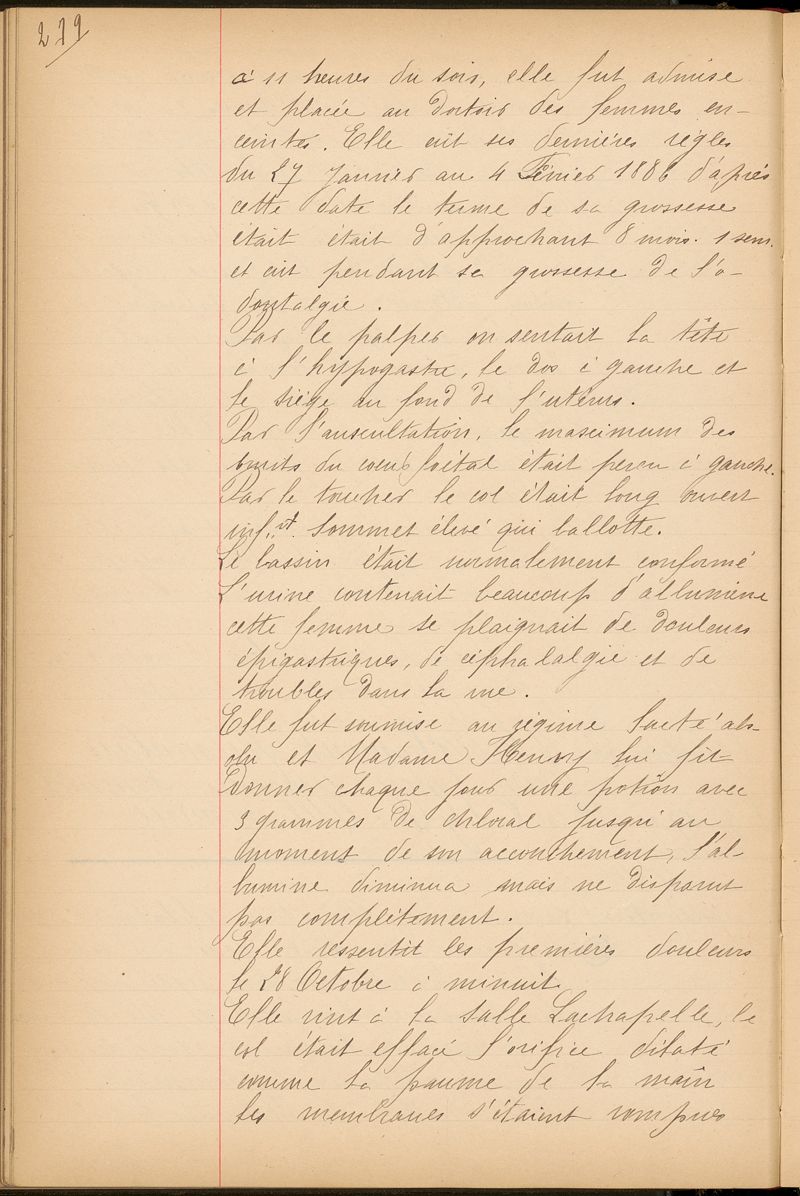 279
à 11 heures du soir, elle fut admise
et placée au dortoir des femmes en-
ceintes. Elle eût ses dernières règles
du 27 Janvier au 4 Février 1886 d'après
cette date le terme de sa grossesse
était était d'approchant 8 mois. 1 sem.
et eût pendant sa grossesse de l'o-
dontalgie.
Par le palper on sentait la tête
à l'hypogastre, le dos à gauche et
le siège au fond de l'utérus.
Par l'auscultation, le mascimum des
bruits du cœur foétal était perçu à gauche.
Par le toucher le col était long ouvert
inf. nt. Sommet élevé qui ballotte.
Le bassin était normalement conformé
L'urine contenait beaucoup d'allumine
cette femme se plaignait de douleurs
épigastriques, de céphalalgie et de
troubles dans la vue.
Elle fut soumise au régime lacté abs-
olu et Madame Henry lui fit
donner chaque jour une potion avec
3 grammes de chloral jusqu'au
moment de son accouchement, l'al-
bumine diminua mais ne disparut
pas complétement.
Elle ressentit les premières douleurs
le 28 Octobre à minuit.
Elle vint à la salle Lachapelle, le
col était effacé l'orifice dilaté
comme la paume de la main
les membranes s'étaient rompues